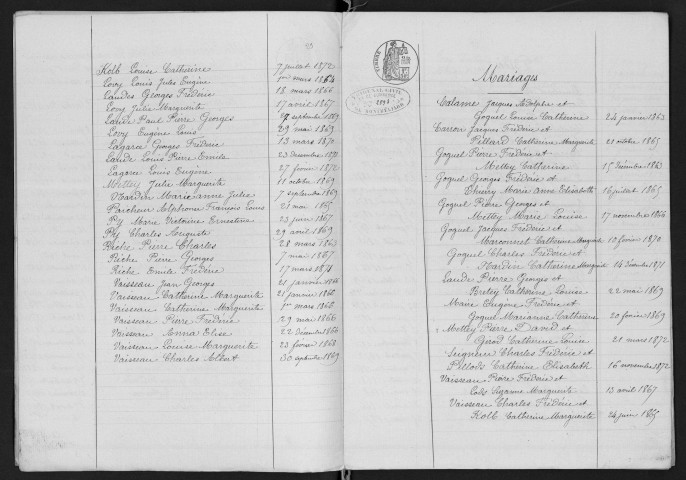 Kolb Louise Catherine 7 juillet 1872
Lovy Louis Jules Eugène 1er mars 1864
Laudes Georges Frédéric 18 mars 1866
Lovy Julie Marguerite 17 avril 1867
Laude Paul Pierre Georges 27 septembre 1869
Lovy Eugène Louis 29 mai 1869
Lagarce Georges Frédéric 13 mars 1870
Laude Louis Pierre Emile 23 décembre 1871
Lagarce Louis Eugène 27 février 1872
Mettey Julie Marguerite 11 octobre 1869
Mardin Marie anne Julie 7 septembre 1869
Parcheur Alphonse François Louis 21 mai 1865
Py Marie Victoire Ernestine 23 juin 1867
Py Charles Auguste 29 avril 1869
Pèche Pierre Charles 28 mars 1863
Pèche Pierre Georges 7 mai 1867
Riche Emile Frédéric 17 mars 1871
Vaisseau Jean Georges 21 janvier
Vaisseau Catherine Marguerite 21 janvier
Vaisseau Catherine Marguerite 1er mars
Vaisseau Pierre Frédéric 29 mai 1866
Vaisseau Anna Elise 22 décembre 1866
Vaisseau Louise Marguerite 23 février 1868
Vaisseau Charles Albert 30 septembre 1869
Mariages
Calame Jacques Adolphe et
Goguel Louise Catherine 24 janvier 1863
Jacques Frédéric et
Pillard Catherine Marguerite 21 octobre 1865
Goguel Pierre Frédéric et
Mettey Catherine 15 décembre 1863
Goguel Georges Frédéric et
Marie Anne Elisabeth 16 juillet 1865
Goguel Pierre Georges et
Mettey Marie Louise 17 novembre 1866
Goguel Jacques Frédéric et
Marconnet Catherine Marguerite 10 février 1870
Goguel Charles Frédéric et
Mardin Catherine Marguerite 14 décembre 1871
Laude Pierre Georges et
Catherine Louise 22 mai 1869
Marie Eugène Frédéric et
Goguel Marianne Catherine 20 février 1869
Mettey Pierre David et
Girod Catherine Louise 21 mars 1872
Seigneur Charles Frédéric et
Catherine Elisabeth 16 novembre 1872
Vaisseau Pierre Frédéric et
Suzanne Marguerite 13 avril 1867
Vaisseau Charles Frédéric et
Kolb Catherine Marguerite 24 juin 1865